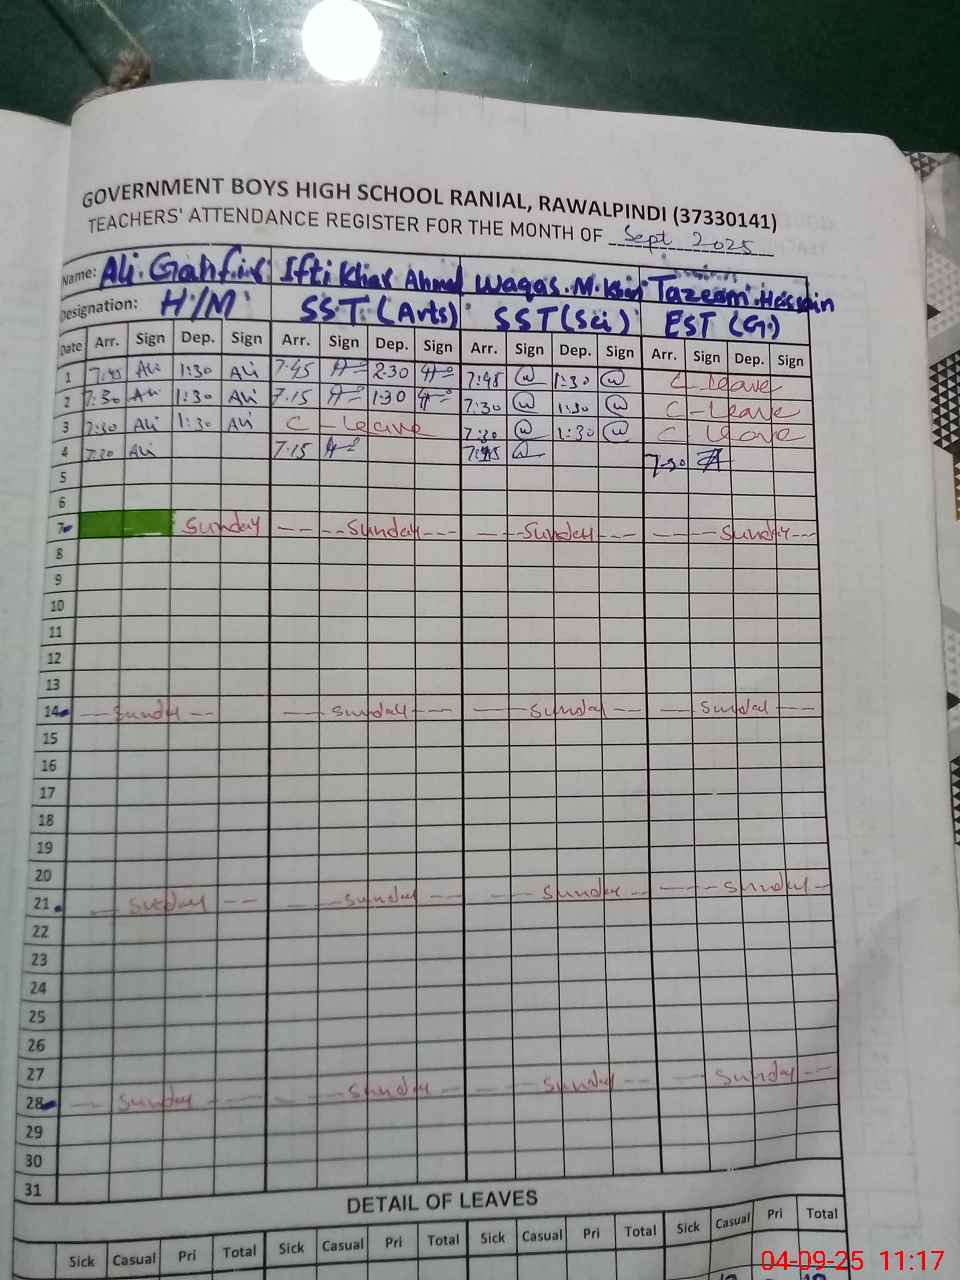 GOVERNMENT BOYS HIGH SCHOOL RANIAL, RAWALPINDI (37330141)
TEACHERS' ATTENDANCE REGISTER FOR THE MONTH OF Sept 2025
Name: Ali Iftikhar Ahmed Waqas M. Khan Tazeem Hussain
Designation: H/M SST (Arts) SST (Sci) EST (G)
Date Arr. Sign Dep. Sign Arr. Sign Dep. Sign Arr. Sign Dep. Sign Arr. Sign Dep. Sign
1 7:45 Ali 1:30 Ali 7.45 2:30 7:45 1:30 C-leave
2 7:30 Ali 1:30 Ali 7.15 1:30 7:30 1:30 C-Leave
3 7:30 Ali 1:30 Ali C-Leave 7:30 1:30 C-Leave
4 7:30 Ali 7.15 7:45 7:30
5
6
7 Sunday Sunday Sunday Sunday
8
9
10
11
12
13
14 Sunday Sunday Sunday Sunday
15
16
17
18
19
20
21 Sunday Sunday Sunday Sunday
22
23
24
25
26
27
28 Sunday Sunday Sunday Sunday
29
30
31
DETAIL OF LEAVES
Sick Casual Pri Total Sick Casual Pri Total Sick Casual Pri Total Sick Casual Pri Total
04-09-25 11:17